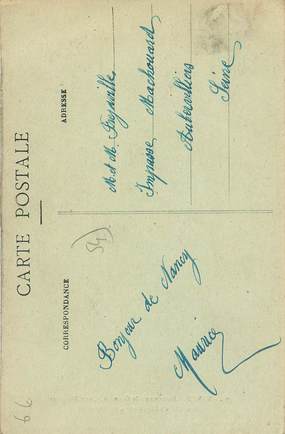 CARTE POSTALE
CORRESPONDANCE
ADRESSE
54)
Bonjour de Nancy
Maurice
M et Mme
Impasse Machouard
Aubervilliers
Seine
66